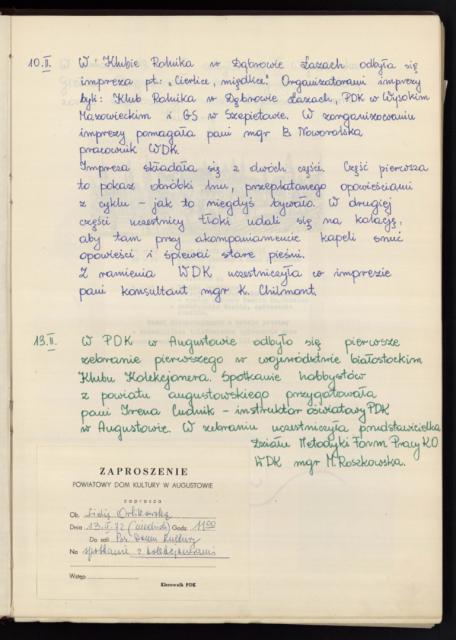 10.II. W Klubie Rolnika w Dąbrowie Łazach odbyła się
impreza pt.: „Cierlice, międlice". Organizatorami imprezy
byli: Klub Rolnika w Dąbrowie Łazach, PDK w Wysokim
Mazowieckim i GS w Szepietowie. W zorganizowaniu
imprezy pomagała pani mgr B. Noworolska
pracownik WDK.
Impreza składała się z dwóch części. Część pierwsza
to pokaz obróbki lnu, przeplatanego opowieściami
z cyklu - jak to niegdyś bywało. W drugiej
części uczestnicy tłoki udali się na kolację,
aby tam przy akompaniamencie kapeli snuć
opowieści i śpiewać stare pieśni.
Z ramienia WDK uczestniczyła w imprezie
pani konsultant mgr K. Chilmont.
13.II. W PDK w Augustowie odbyło się pierwsze
zebranie pierwszego w województwie białostockim
Klubu Kolekcjonera. Spotkanie hobbystów
z powiatu augustowskiego przygotowała
pani Irena Cudnik - instruktor oświatowy PDK
w Augustowie. W zebraniu uczestniczyła przedstawicielka
Działu Metodyki Form Pracy KO
WDK mgr M. Roszkowska.
ZAPROSZENIE
POWIATOWY DOM KULTURY W AUGUSTOWIE
zaprasza
Ob. Lidię Orlikowską
Dnia 13.II.72 (niedziela) Godz. 11.00
Do sali Pow. Domu Kultury
Na spotkanie z kolekcjonerami
Wstęp
Kierownik PDK